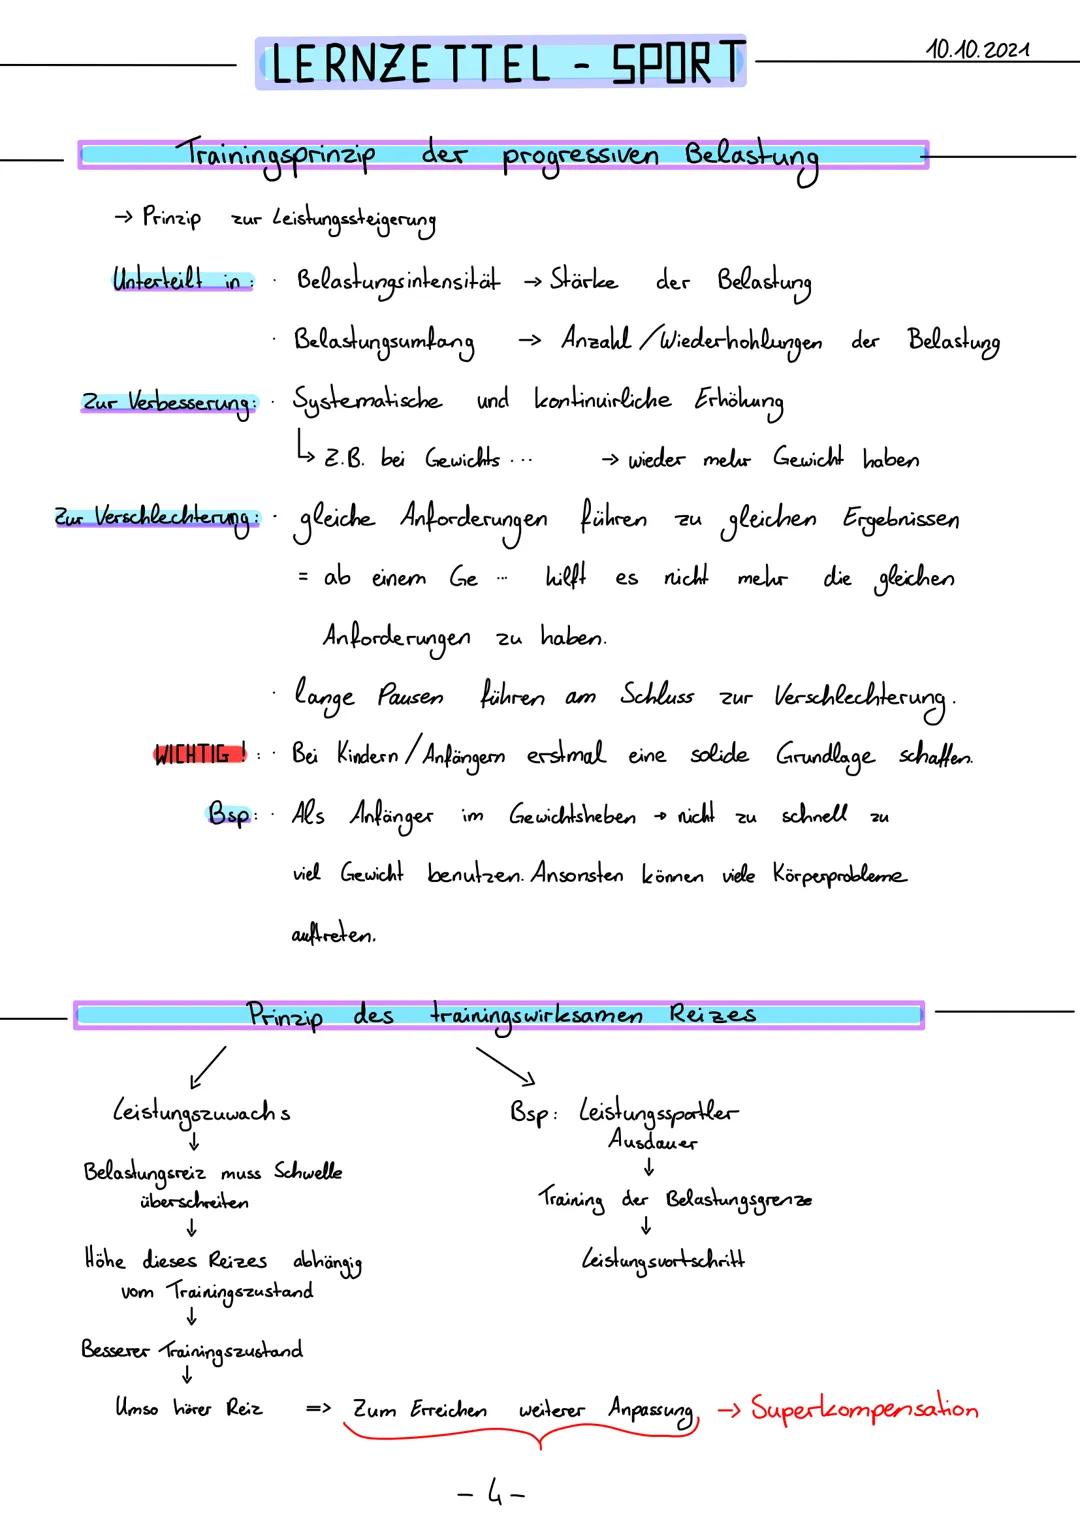 LERNZETTEL - SPORT
10.10.2021
Trainingsprinzip der progressiven Belastung
→ Prinzip zur Leistungssteigerung
Unterteilt in: · Belastungsintensität → Stärke der Belastung
· Belastungsumfang → Anzahl/Wiederhohlungen der Belastung
Zur Verbesserung: · Systematische und kontinuirliche Erhöhung
↳ Z.B. bei Gewichts ... → wieder mehr Gewicht haben
Zur Verschlechterung: · gleiche Anforderungen führen zu gleichen Ergebnissen
= ab einem Ge ... hilft es nicht mehr die gleichen
Anforderungen zu haben.
· lange Pausen führen am Schluss zur Verschlechterung.
WICHTIG!: · Bei Kindern/Anfängern erstmal eine solide Grundlage schaffen.
Bsp: · Als Anfänger im Gewichtsheben → nicht zu schnell zu
viel Gewicht benutzen. Ansonsten können viele Körperprobleme
auftreten.
Prinzip des trainingswirksamen Reizes
Leistungszuwachs
↓
Belastungsreiz muss Schwelle
überschreiten
↓
Höhe dieses Reizes abhängig
vom Trainingszustand
↓
Besserer Trainingszustand
↓
Umso hörer Reiz => Zum Erreichen weiterer Anpassung → Superkompensation
Bsp: Leistungssportler
Ausdauer
↓
Training der Belastungsgrenze
↓
Leistungsvortschritt
- 4 -